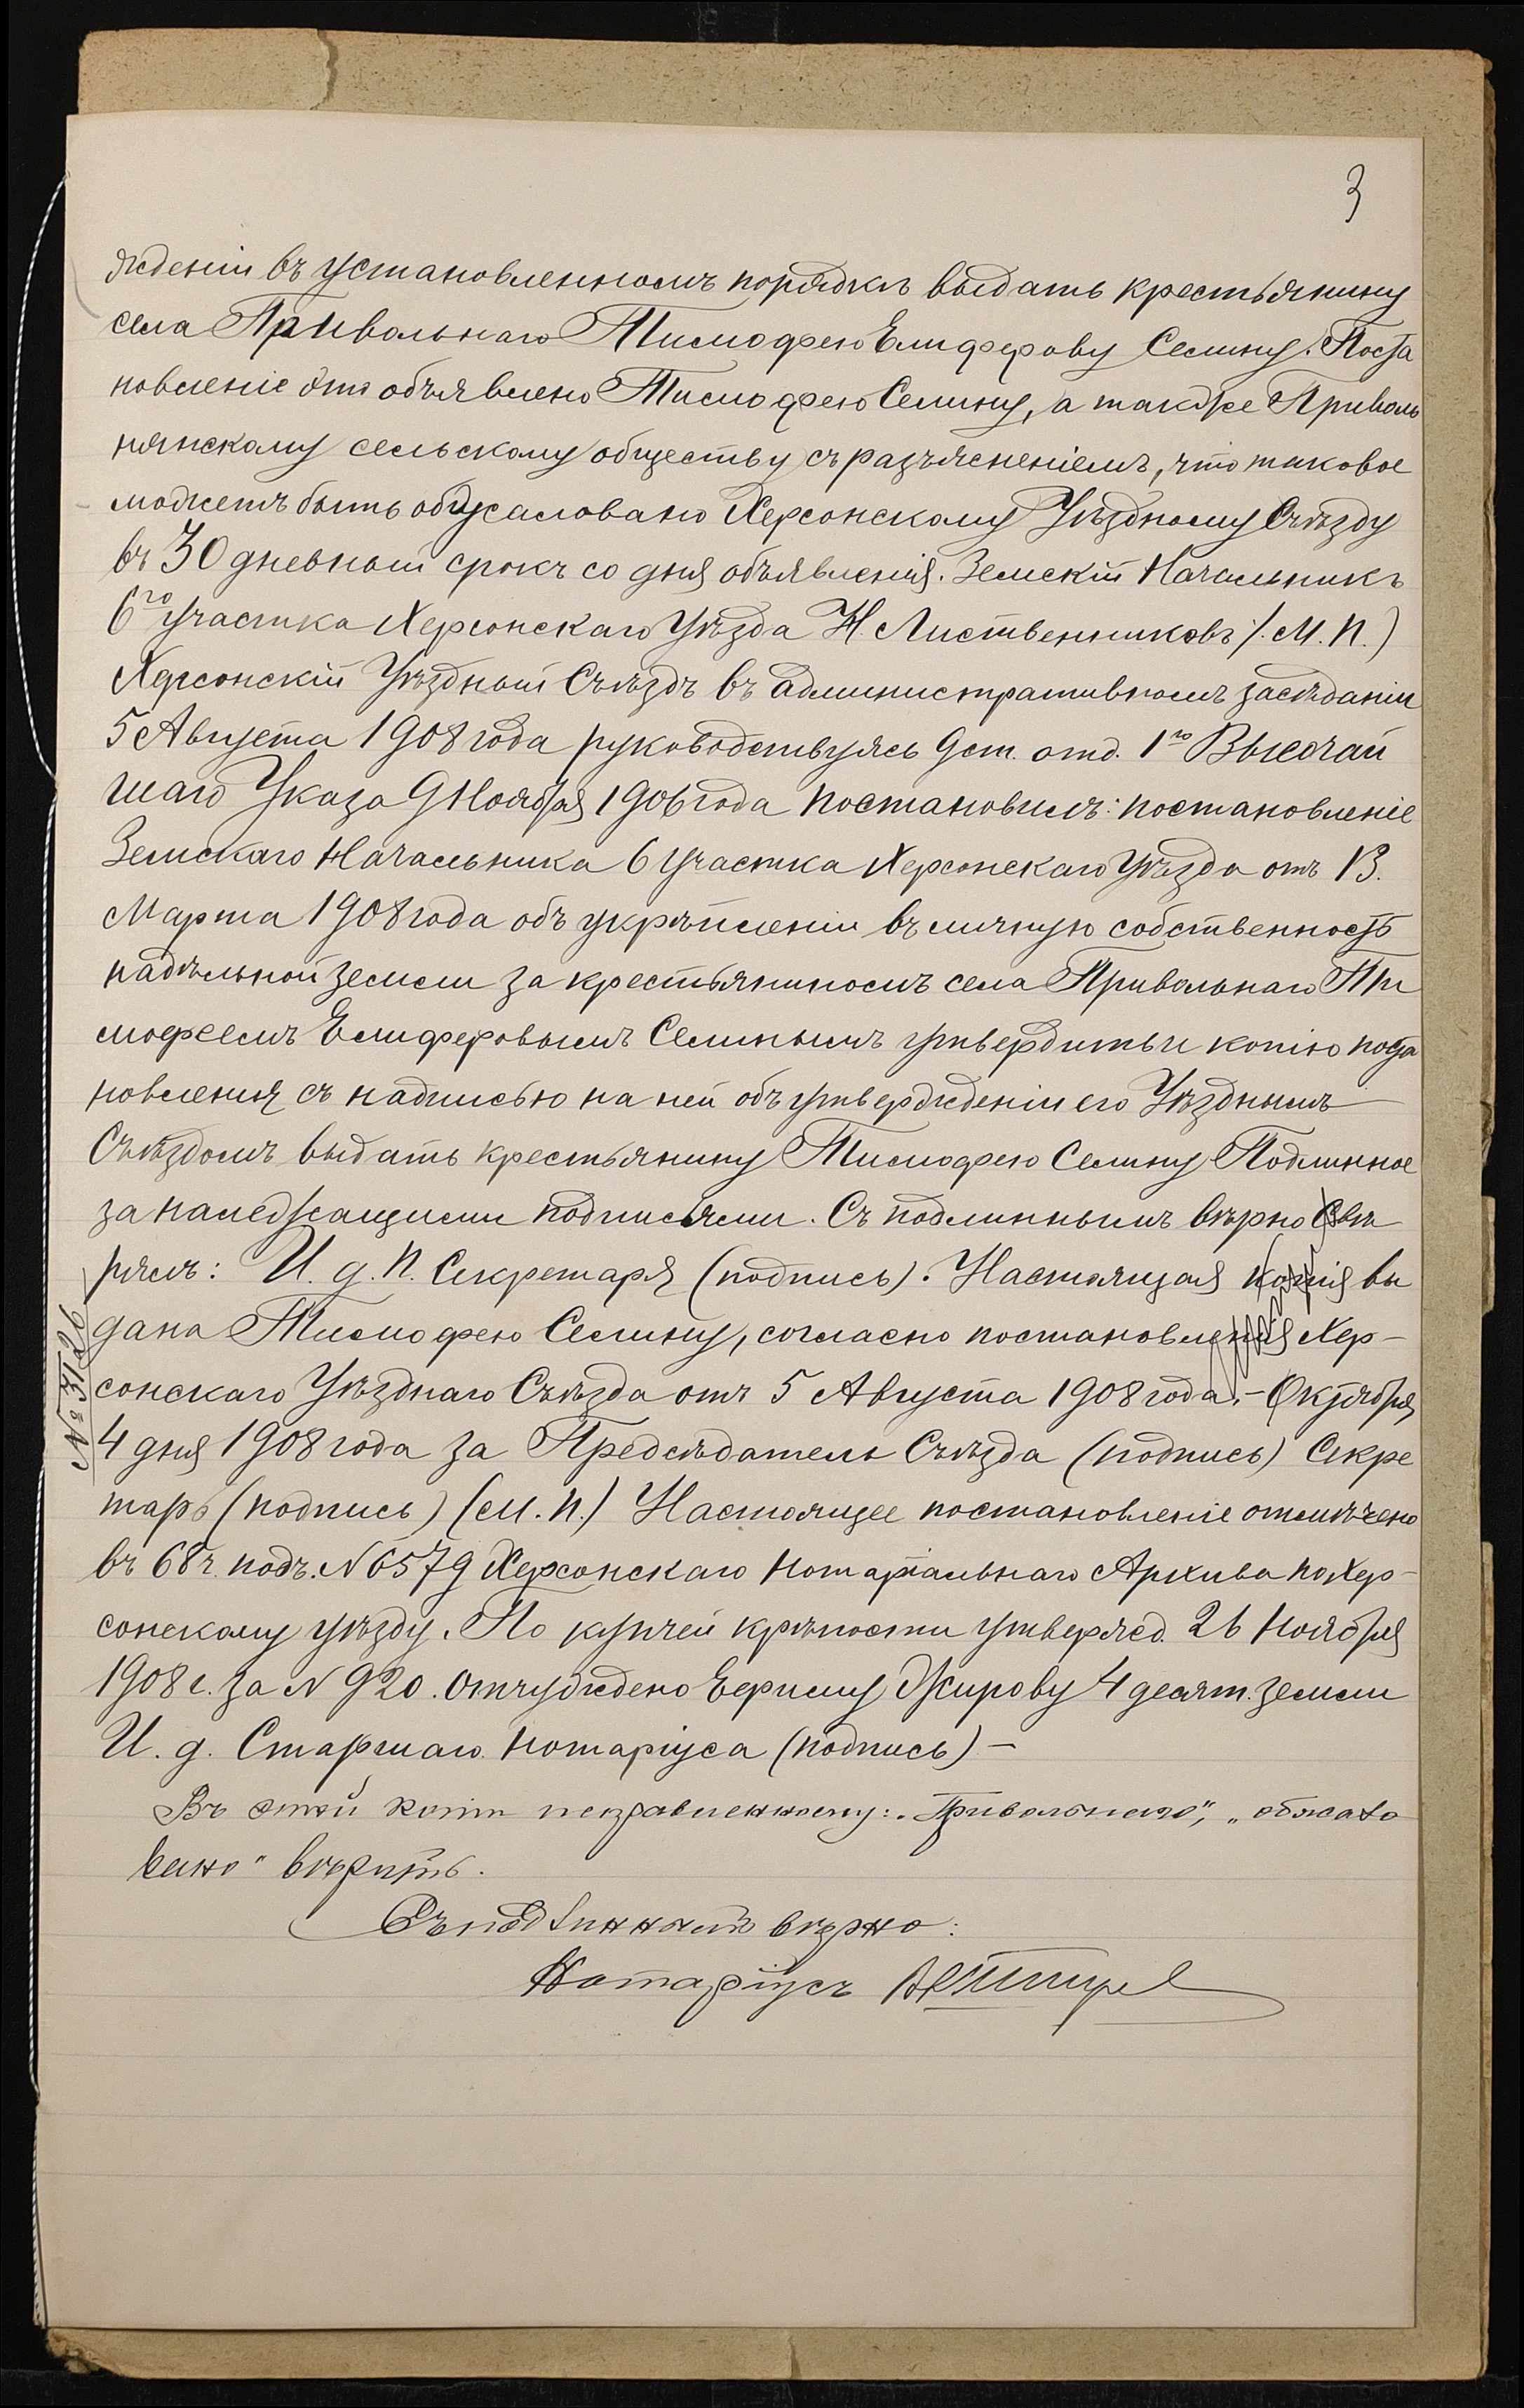 3
жденіи въ установленномъ порядкѣ выдать крестьянину
села Привольнаго Тимофею Елиферову Селину. Поста
новленіе это объявлено Тимофею Селину, а также Приволь
нянскому сельскому обществу съ разъясненіемъ, что таковое
можетъ быть обжаловано Херсонскому Уѣздному Съѣзду
въ 30 дневный срокъ со дня объявленія. Земскій Начальникъ
6го участка Херсонскаго Уѣзда Н. Лиственниковъ /. М. П.)
Херсонскій Уѣздный Съѣздъ въ административномъ засѣданіи
5 Августа 1908 года руководствуясь 9 ст. отд. 1го Высочай
шаго Указа 9 Ноября 1906 года постановилъ: постановленіе
Земскаго Начальника 6 участка Херсонскаго Уѣзда отъ 13.
Марта 1908 года объ укрѣпленіи въ личную собственность
надѣльной земли за крестьяниномъ села Привольнаго Ти
мофеемъ Елиферовымъ Селинымъ утвердить и копію поста
новленія съ надписью на ней объ утвержденіи его Уѣзднымъ
Съѣздомъ выдать крестьянину Тимофею Селину Подлинное
за надлежащими подписями. Съ подлиннымъ вѣрно Свѣ
рялъ: И. д. П. Секретаря (подпись). Настоящая копія вы
дана Тимофею Селину, согласно постановленія Хер-
сонскаго Уѣзднаго Съѣзда отъ 5 Августа 1908 года.- Октября
№ 3126
4 дня 1908 года за Предсѣдатель Съѣзда (подпись) Секре
тарь (подпись) (М. П.) Настоящее постановленіе отмѣчено
въ 68 ч. подъ. N 6579 Херсонскаго Нотаріальнаго Архива по Хер-
сонскому уѣзду. По купчей крѣпости утвержд. 26 Ноября
1908 г. за N 920. Отчуждено Ефиму Жирову 4 десят. земли
И. д. Старшаго Нотаріуса (подпись) -
Въ этой копіи исправленному: "Привольнаго", "обжало
вано" вѣрить.
Съ подлиннымъ вѣрно:
Нотаріусъ